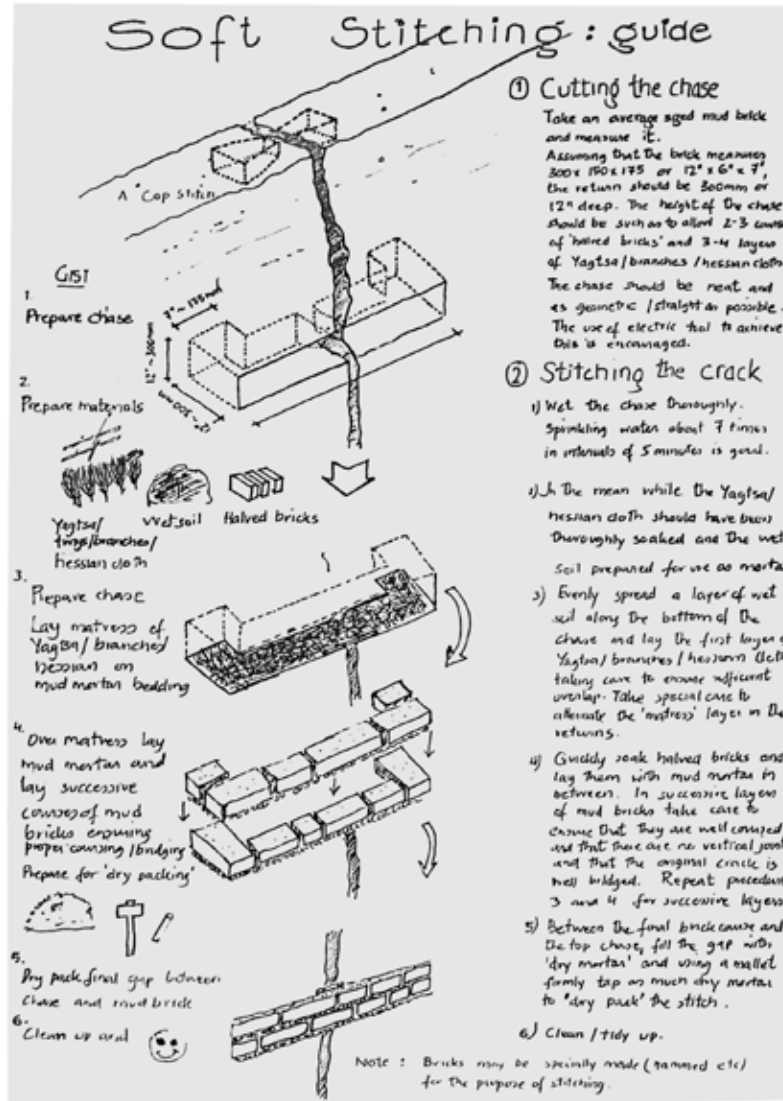 Soft Stitching : guide
A "Cap stitch
GIST
1.
Prepare chase
7" ~ 175mm
12" ~ 300mm
12" ~ 300mm
2.
Prepare materials
Yagtsa/
twigs/branches/
hessian cloth
Wet soil
Halved bricks
3.
Prepare chase
Lay matress of
Yagtsa/ branches/
hessian on
mud mortar bedding
4.
Over matress lay
mud mortar and
lay successive
courses of mud
bricks ensuring
proper coursing/bridging
Prepare for 'dry packing'
5.
Dry pack final gap between
chase and mud brick
6.
Clean up and
① Cutting the chase
Take an average sized mud brick
and measure it.
Assuming that the brick measures
300 x 150 x 175 or 12" x 6" x 7",
the return should be 300mm or
12" deep. The height of the chase
should be such as to allow 2-3
of 'halved bricks' and 3-4 layers
of Yagtsa/branches/hessian cloth
The chase should be neat and
as geometric /straight as possible.
The use of electric tool to achieve
this is encouraged.
② Stitching the crack
1) Wet the chase thoroughly.
Sprinkling water about 7 times
in intervals of 5 minutes is good.
2) In the mean while the Yagtsa/
hessian cloth should have been
thoroughly soaked and the wet
soil prepared for use as
3) Evenly spread a layer of wet
soil along the bottom of the
chase and lay the first layer
Yagtsa/ branches / hessian
taking care to ensure sufficient
overlap. Take special care to
alternate the 'matress' layer in the
returns.
4) Quickly soak halved bricks and
lay them with mud mortar in
between. In successive layers
of mud bricks take care to
ensure that they are well coursed
and that there are no vertical
and that the original crack is
well bridged. Repeat
3 and 4 for successive layers
5) Between the final brick course and
the top chase, fill the gap with
'dry mortar' and using a mallet
firmly tap as much dry mortar
to 'dry pack' the stitch.
6) Clean / tidy up.
Note : Bricks may be specially made (rammed etc)
for the purpose of stitching.